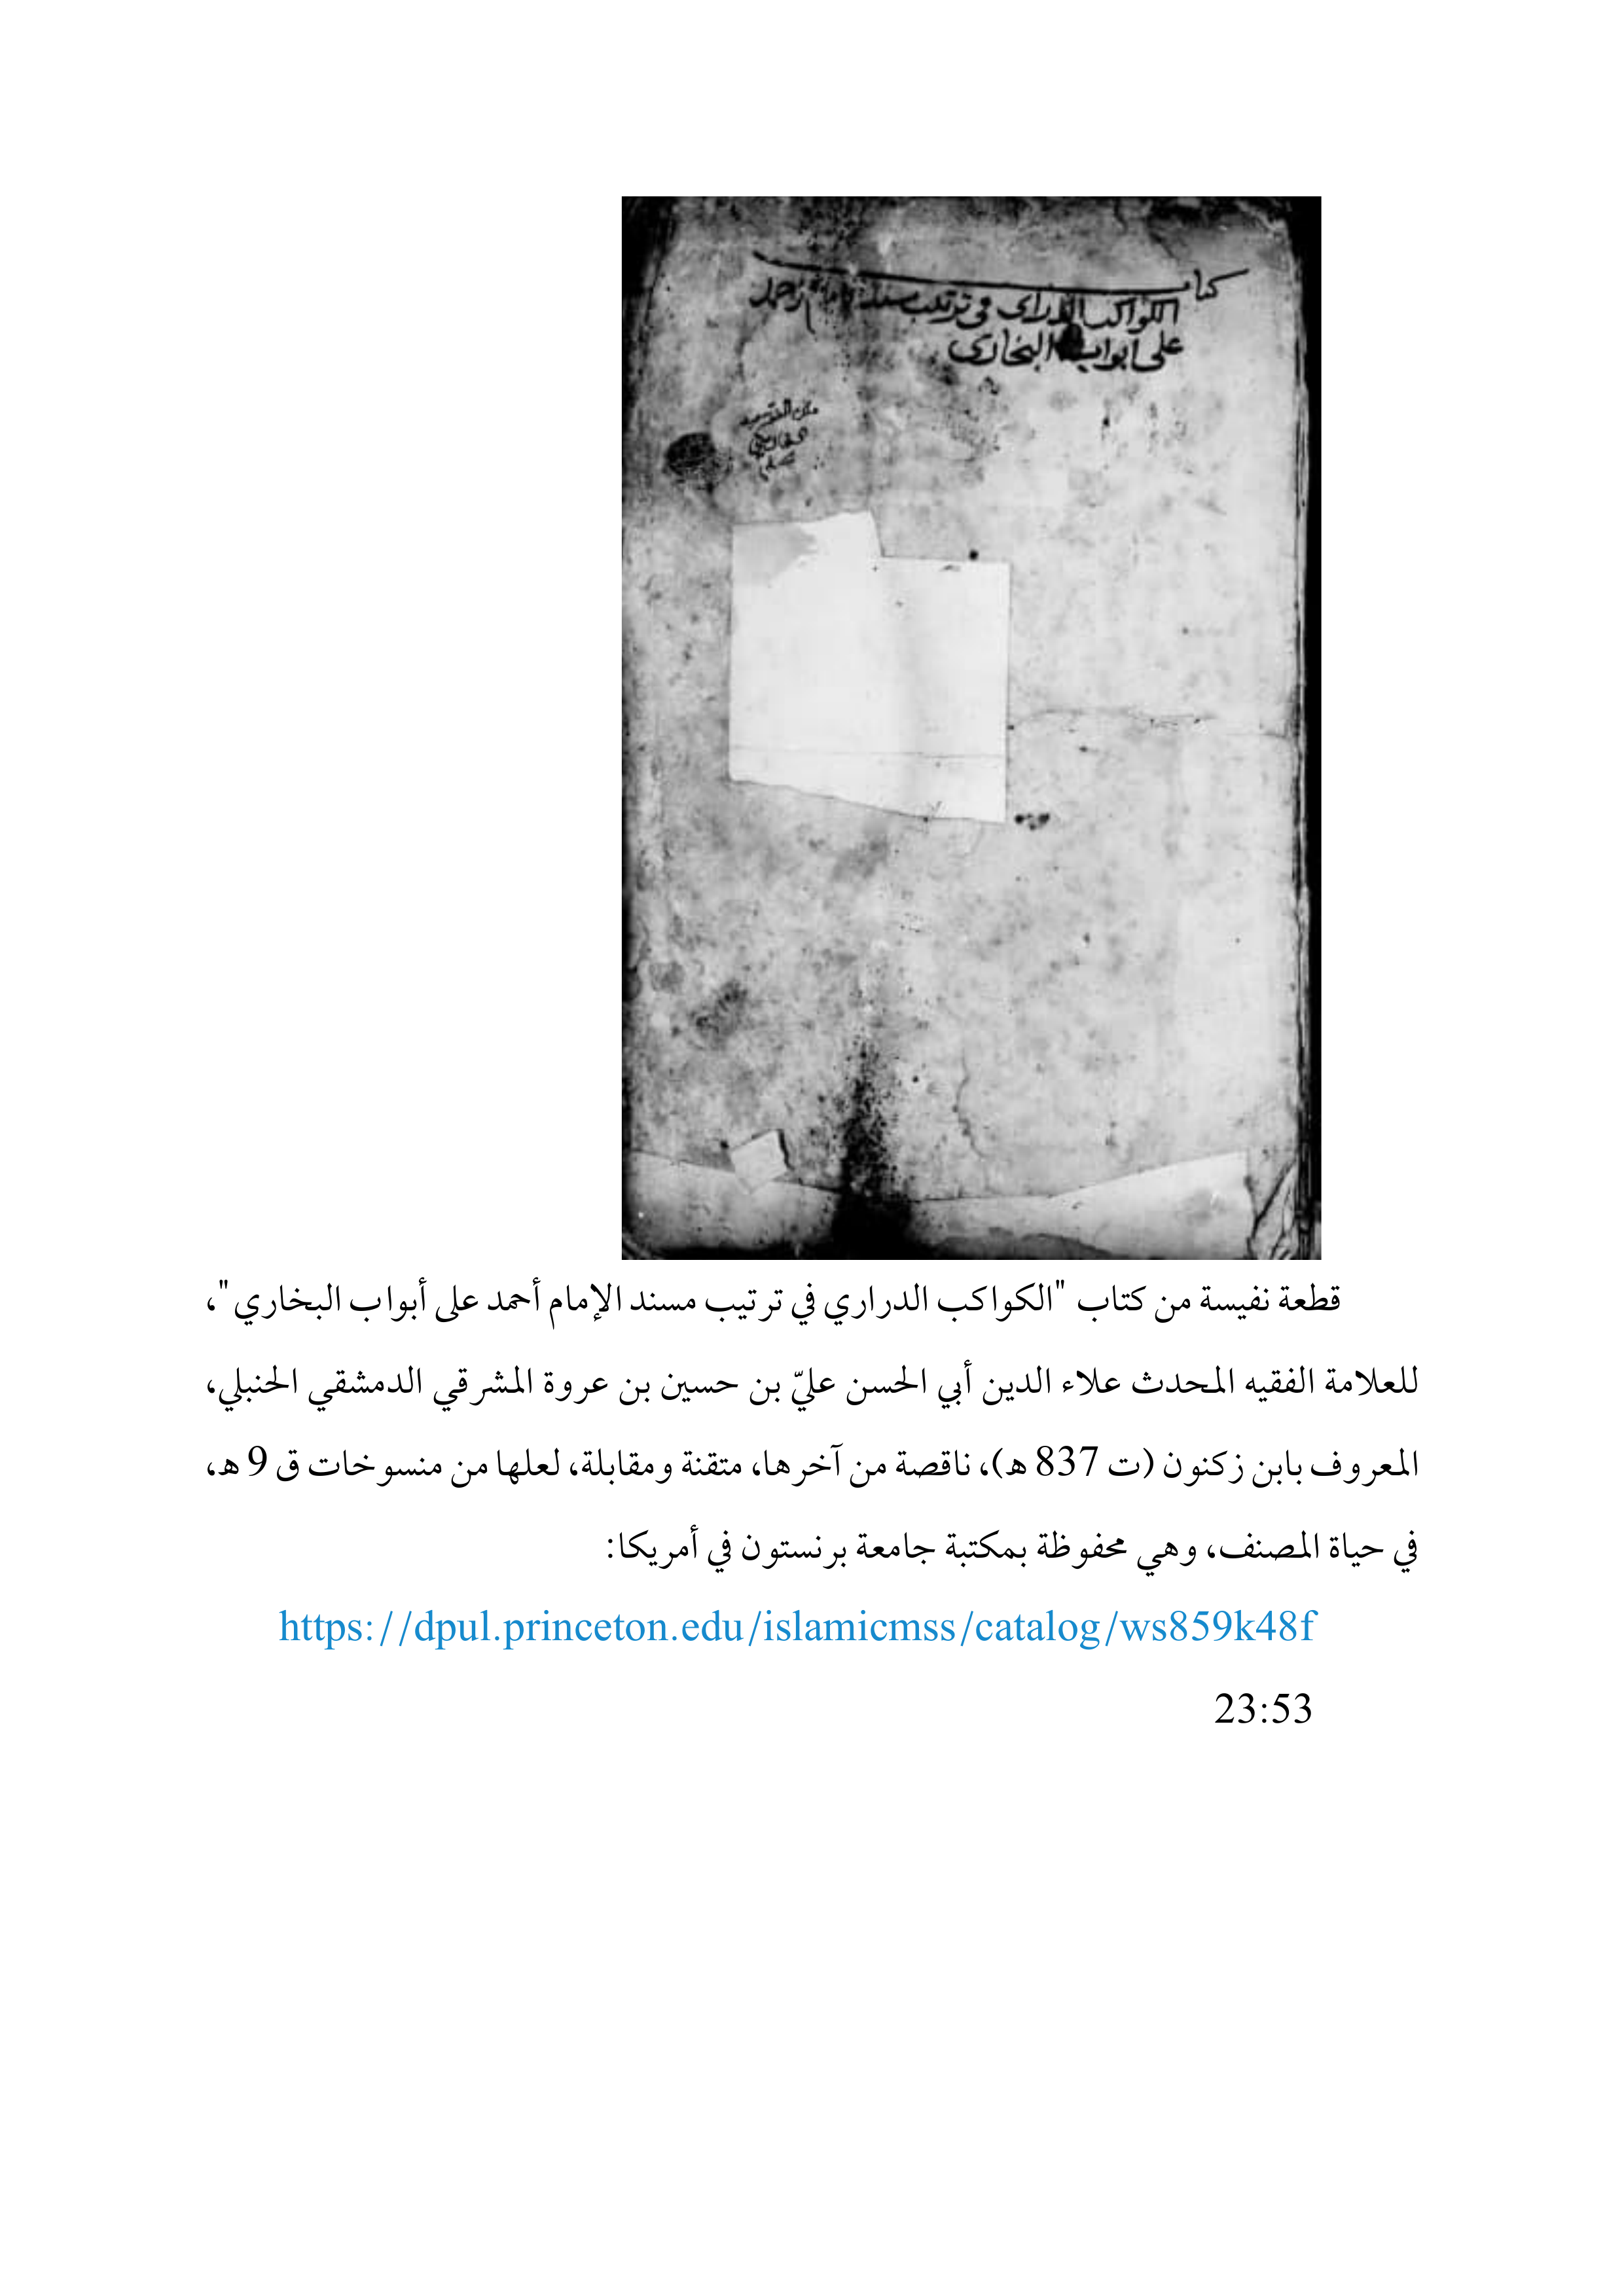 كتاب
الكواكب الدراى فى ترتيب مسند الامام احمد
على ابواب البخارى
قطعة نفيسة من كتاب "الكواكب الدراري في ترتيب مسند الإمام أحمد على أبواب البخاري"،
للعلامة الفقيه المحدث علاء الدين أبي الحسن عليّ بن حسين بن عروة المشرقي الدمشقي الحنبلي،
المعروف بابن زكنون (ت 837 هـ)، ناقصة من آخرها، متقنة ومقابلة، لعلها من منسوخات ق 9 هـ،
في حياة المصنف، وهي محفوظة بمكتبة جامعة برنستون في أمريكا:
https://dpul.princeton.edu/islamicmss/catalog/ws859k48f
23:53